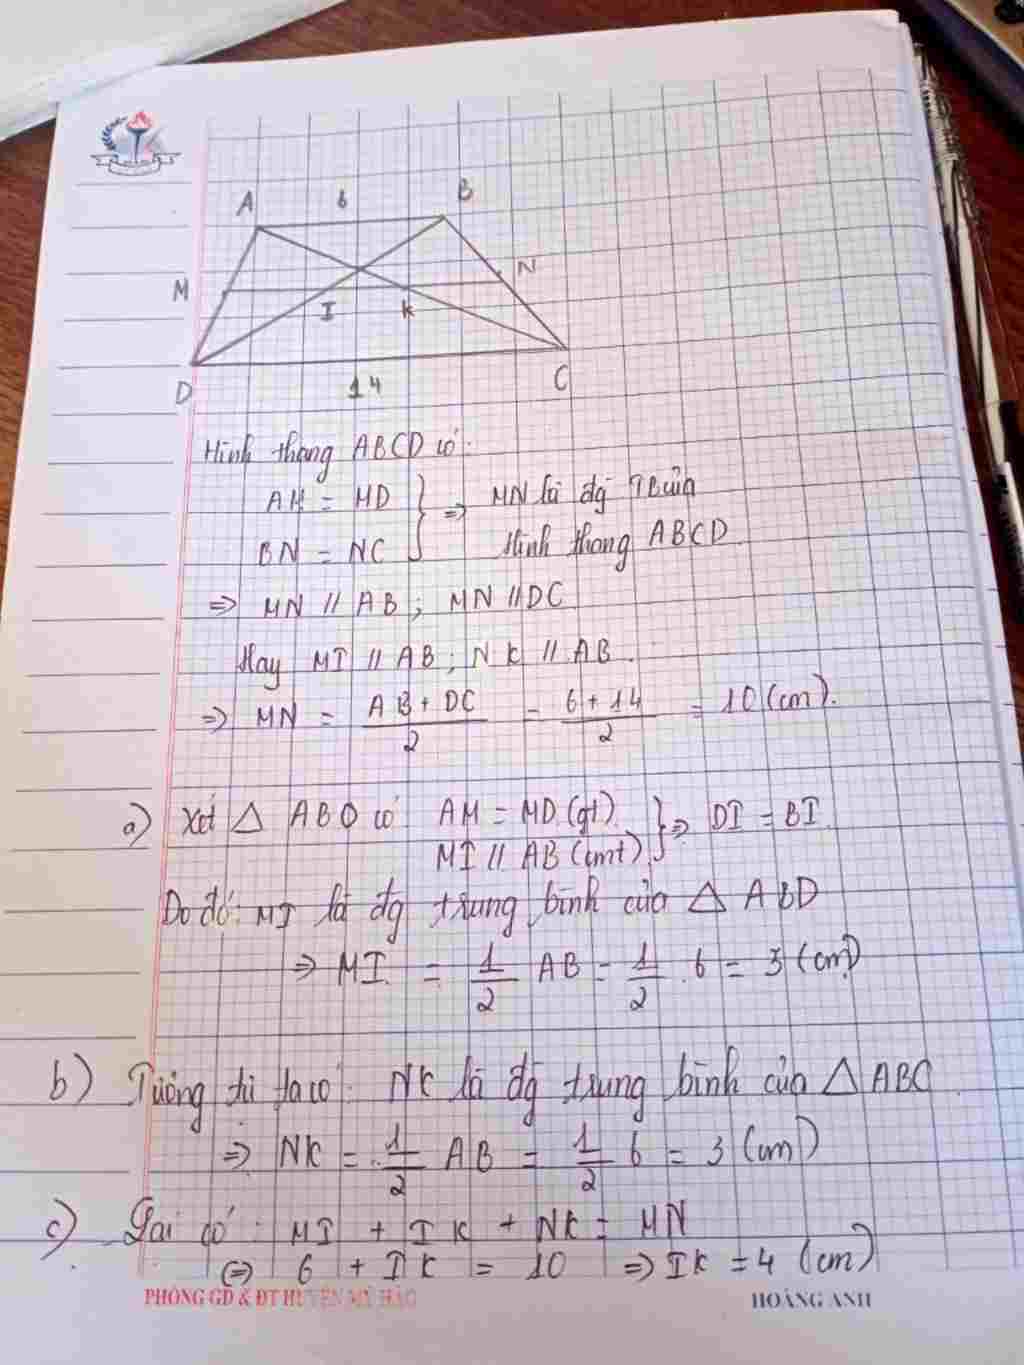 A 6 B
M I K N
D 14 C
Hình thang ABCD có:
AM = MD
BN = NC } => MN là đg TB của
Hình thang ABCD
=> MN // AB ; MN // DC
Hay MI // AB ; NK // AB.
=> MN = AB + DC / 2 = 6 + 14 / 2 = 10 (cm).
a) Xét △ ABD có AM = MD (gt)
MI // AB (cmt) } => DI = BI
Do đó: MI là đg trung bình của △ ABD
=> MI = 1/2 AB = 1/2 . 6 = 3 (cm)
b) Tương tự ta có: NK là đg trung bình của △ ABC
=> NK = 1/2 AB = 1/2 6 = 3 (cm)
c) Lại có: MI + IK + NK = MN
(=) 6 + IK = 10 => IK = 4 (cm)
PHÒNG GD & ĐT HUYỆN MỸ HÀO HOÀNG ANH